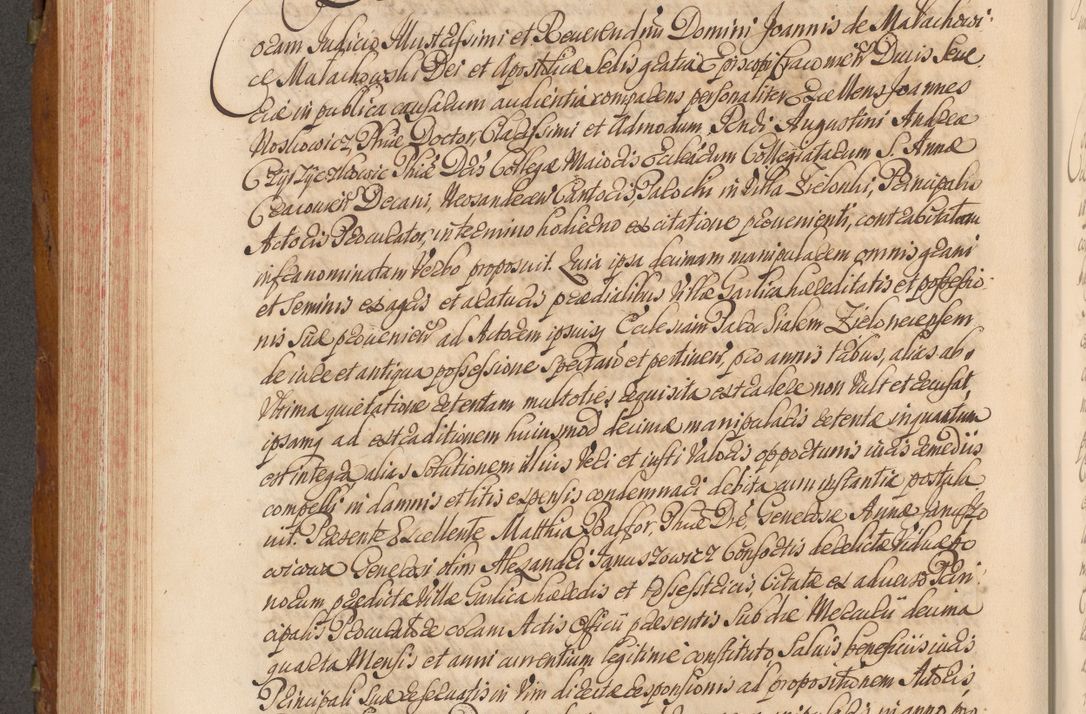 Coram Judicio Illustrissimi et Reverendissimi Domini Joannis de Malachowi
ce Malachowski Dei et Apostolicæ Sedis gratia Episcopi Cracovien Ducis Seve
riæ in publica causarum audientia comparens personaliter Excellens Joannes
Noskowicz Phiæ Doctor, Clarissimi et Admodum Rndi Augustini Andreæ
Phiæ Dris Collegæ Maioris Ecclesiarum Collegiatarum S. Annæ
Cracovien Decani, Neosandecen Cantoris Parochi in Villa Zielonki, Principalis
Actoris Procurator, in termino hodierno ex citatione proveniente, contra citatam
infranominatam Verbo proposuit. Quia ipsa decimam manipularem omnis grani
et seminis ex agris et araturis prædialibus Villæ Garlica hæreditatis et possessio
nis suæ provenien ad Actorem ipsiusq Ecclesiam Parochialem Zielonecensem
de iure et antiqua possessione spectan et pertinen, pro annis tribus, alias ab
Vltima quietatione retentam multoties requisita extradere non Vult et recusat,
ipsamq ad extraditionem huiusmod decimæ manipularis retentæ inquantum
est integra, alias solutionem illius Veri et iusti Valoris opportunis iuris remediis
compelli in damnis et litis expensis condemnari debita cum instantia postula
uit. Præsente Excellente Matthia Phiæ Dre, Generosæ Annæ Januszo
wiczowa Generosi olim Alexandri Januszowicz Consortis derelictæ Viduæ
norum prædictæ Villæ Garlica hæredis et Possestricis, Citatæ ex adverso Prin
cipalis Procuratore coram Actis Officii præsentis sub die Mercurii decima
quarta Mensis et anni currentium legitime constituto, Salvis beneficiis iuris
Principali suæ reservatis in Vim directæ responsionis ad propositionem Actoris
in anno